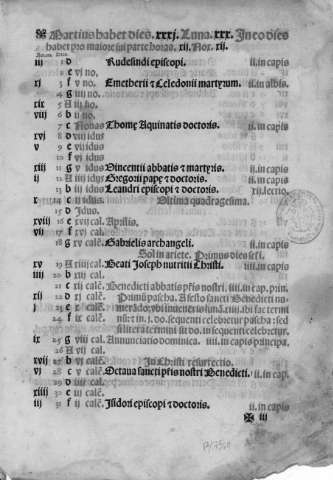 ✠ Martius habet dies. xxxj. Luna. xxx. In eo dies
habet pro maiore sui parte horas. xij. Nox. xij.
iij 1 d Rudesindi episcopi. ii. in capis
2 e vj no.
xj 3 f v no. Emetherii ⁊ Celedonii martyrum. ii. in albis.
4 g iiij no.
xix 5 A iij no.
viij 6 b ii
7 c Nonas Thome Aquinatis doctoris. ii. in capis
xvj 8 d viij idus
v 9 e vij idus
10 f vj idus
xiij 11 g v idus Vincentii abbatis ⁊ martyris. ii. in capis
ij 12 A iiij idus Gregorii pape ⁊ doctoris. ii. in capis
13 b iij idus Leandri episcopi ⁊ doctoris. xij. lectio.
x 14 c ii idus Ultima quadragesima.
15 d Idus.
xviij 16 e xvij cal. Aprilis.
vij 17 f xvj cal.
18 g xv calẽ. Gabrielis archangeli. ii. in capis
Sol in ariete. Primus dies seculi.
xv 19 A xiiij cal. Beati Joseph nutritii Christi. ii. in capis
iiij 20 b xiij cal.
21 c xij calẽ. Benedicti abbatis pr̃is nostri. iiij. in cap. prin.
xij 22 d xj calẽ. Primũ pascha. A festo sancti Benedicti nu
j 23 e x calẽ. merãdo, vbi inueneris lunã. xiiij. ibi fac termi
24 f ix cal. nũ: ⁊ in. j. do. sequenti celebratur pascha: sed
si litera termini sit do. in sequenti celebretur.
ix 25 g viij cal. Annunciatio dominica. iiij. in capis principa.
26 A vij cal.
xvij 27 b vj cal. In Christi resurrectio.
vj 28 c v calẽ. Octaua sancti pr̃is nostri Benedicti. ii. in capis
29 d iiij cal.
xiiij 30 e iij cal.
iij 31 f ij calẽ. Isidori episcopi ⁊ doctoris. ii. in capis
✠ iij